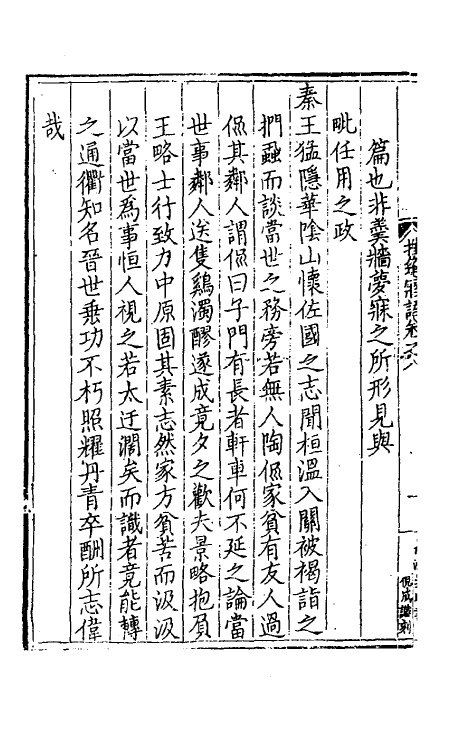 篇也非羹牆夢寐之所形見與
毗任用之政
秦王猛隱華陰山懷佐國之志聞桓溫入關被褐詣之
捫蝨而談當世之務旁若無人陶侃家貧有友人過
侃其鄰人謂侃曰子門有長者軒車何不延之論當
世事鄰人送隻鷄濁醪遂成竟夕之歡夫景略抱負
王略士行致力中原固其素志然家方貧苦而汲汲
以當世爲事恒人視之若太迂濶矣而識者竟能轉
之通衢知名晉世乗功不朽照耀丹青卒酬所志偉
哉